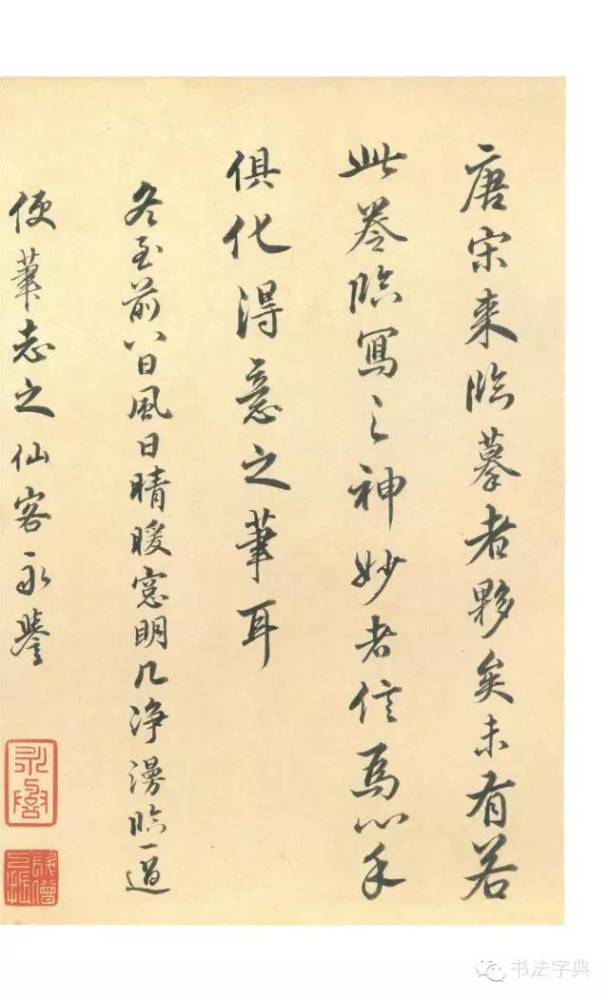 唐宋来臨摹者夥矣未有若
此卷臨寫之神妙者信爲心手
俱化得意之筆耳
冬至前八日風日晴暖窓明几净漫臨一過
便筆志之仙客永譽
永譽
书法字典